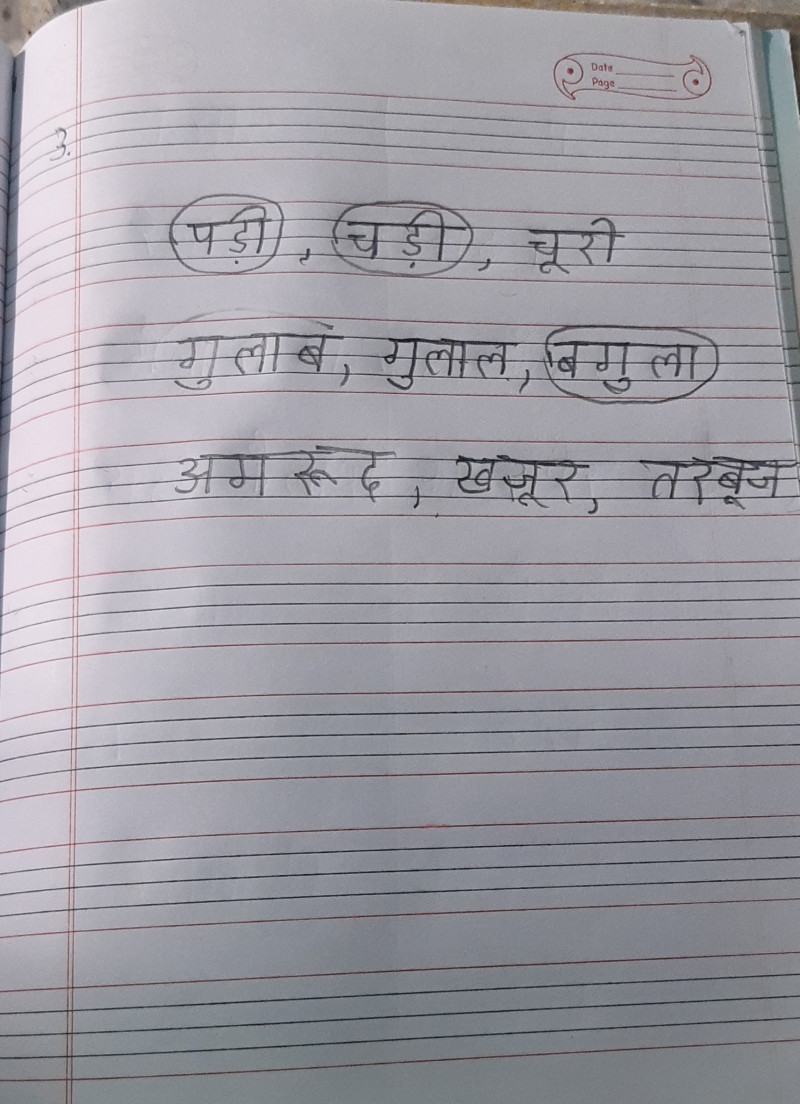 Date
Page
3.
पड़ी, चड़ी, चूरी
गुलाब, गुलाल, बगुला
अमरूद, खजूर, तरबूज